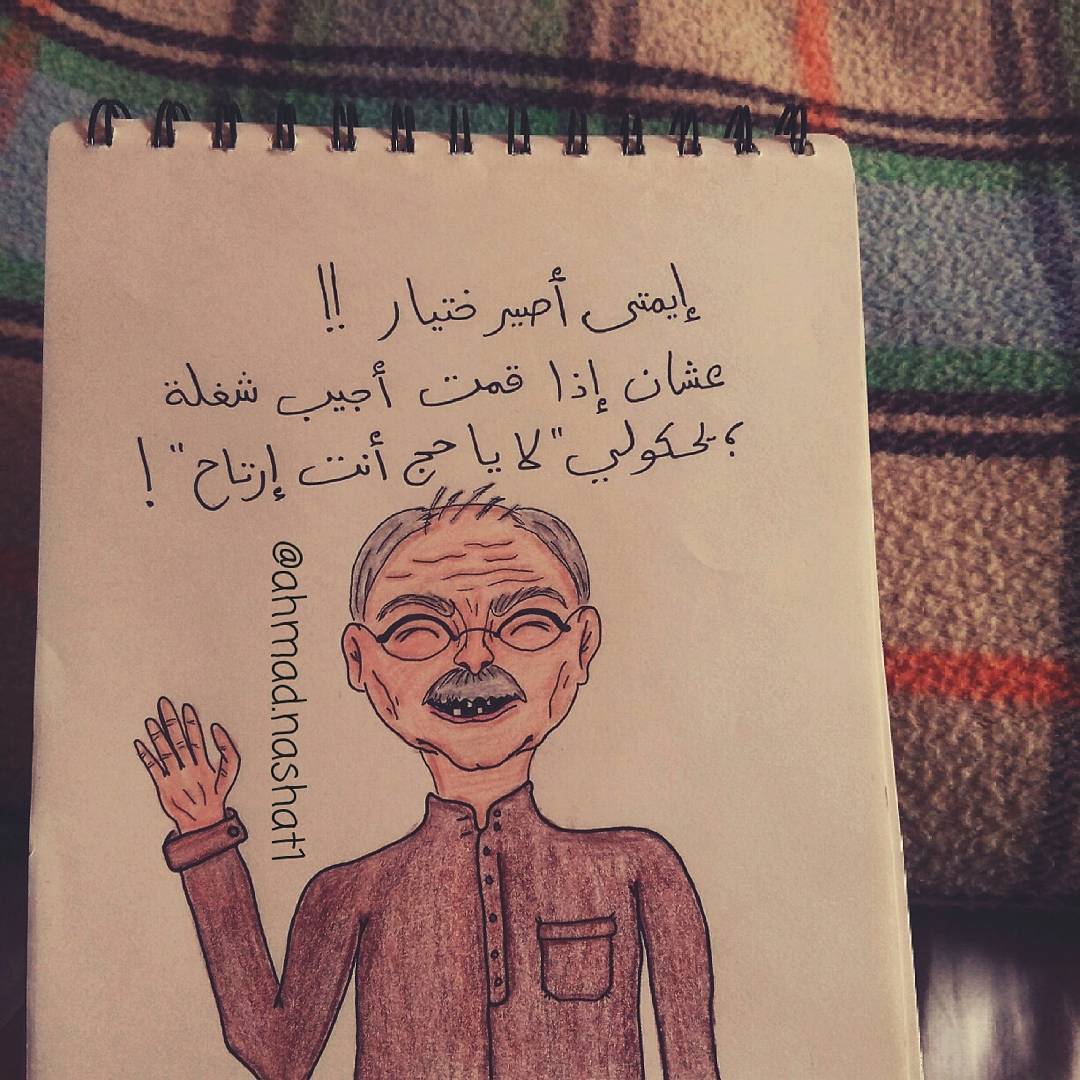 إيمتى أصير ختيار !!
عشان إذا قمت أجيب شغلة
؟ يحكولي "لا يا حج أنت إرتاح" !
@ahmadnashat1